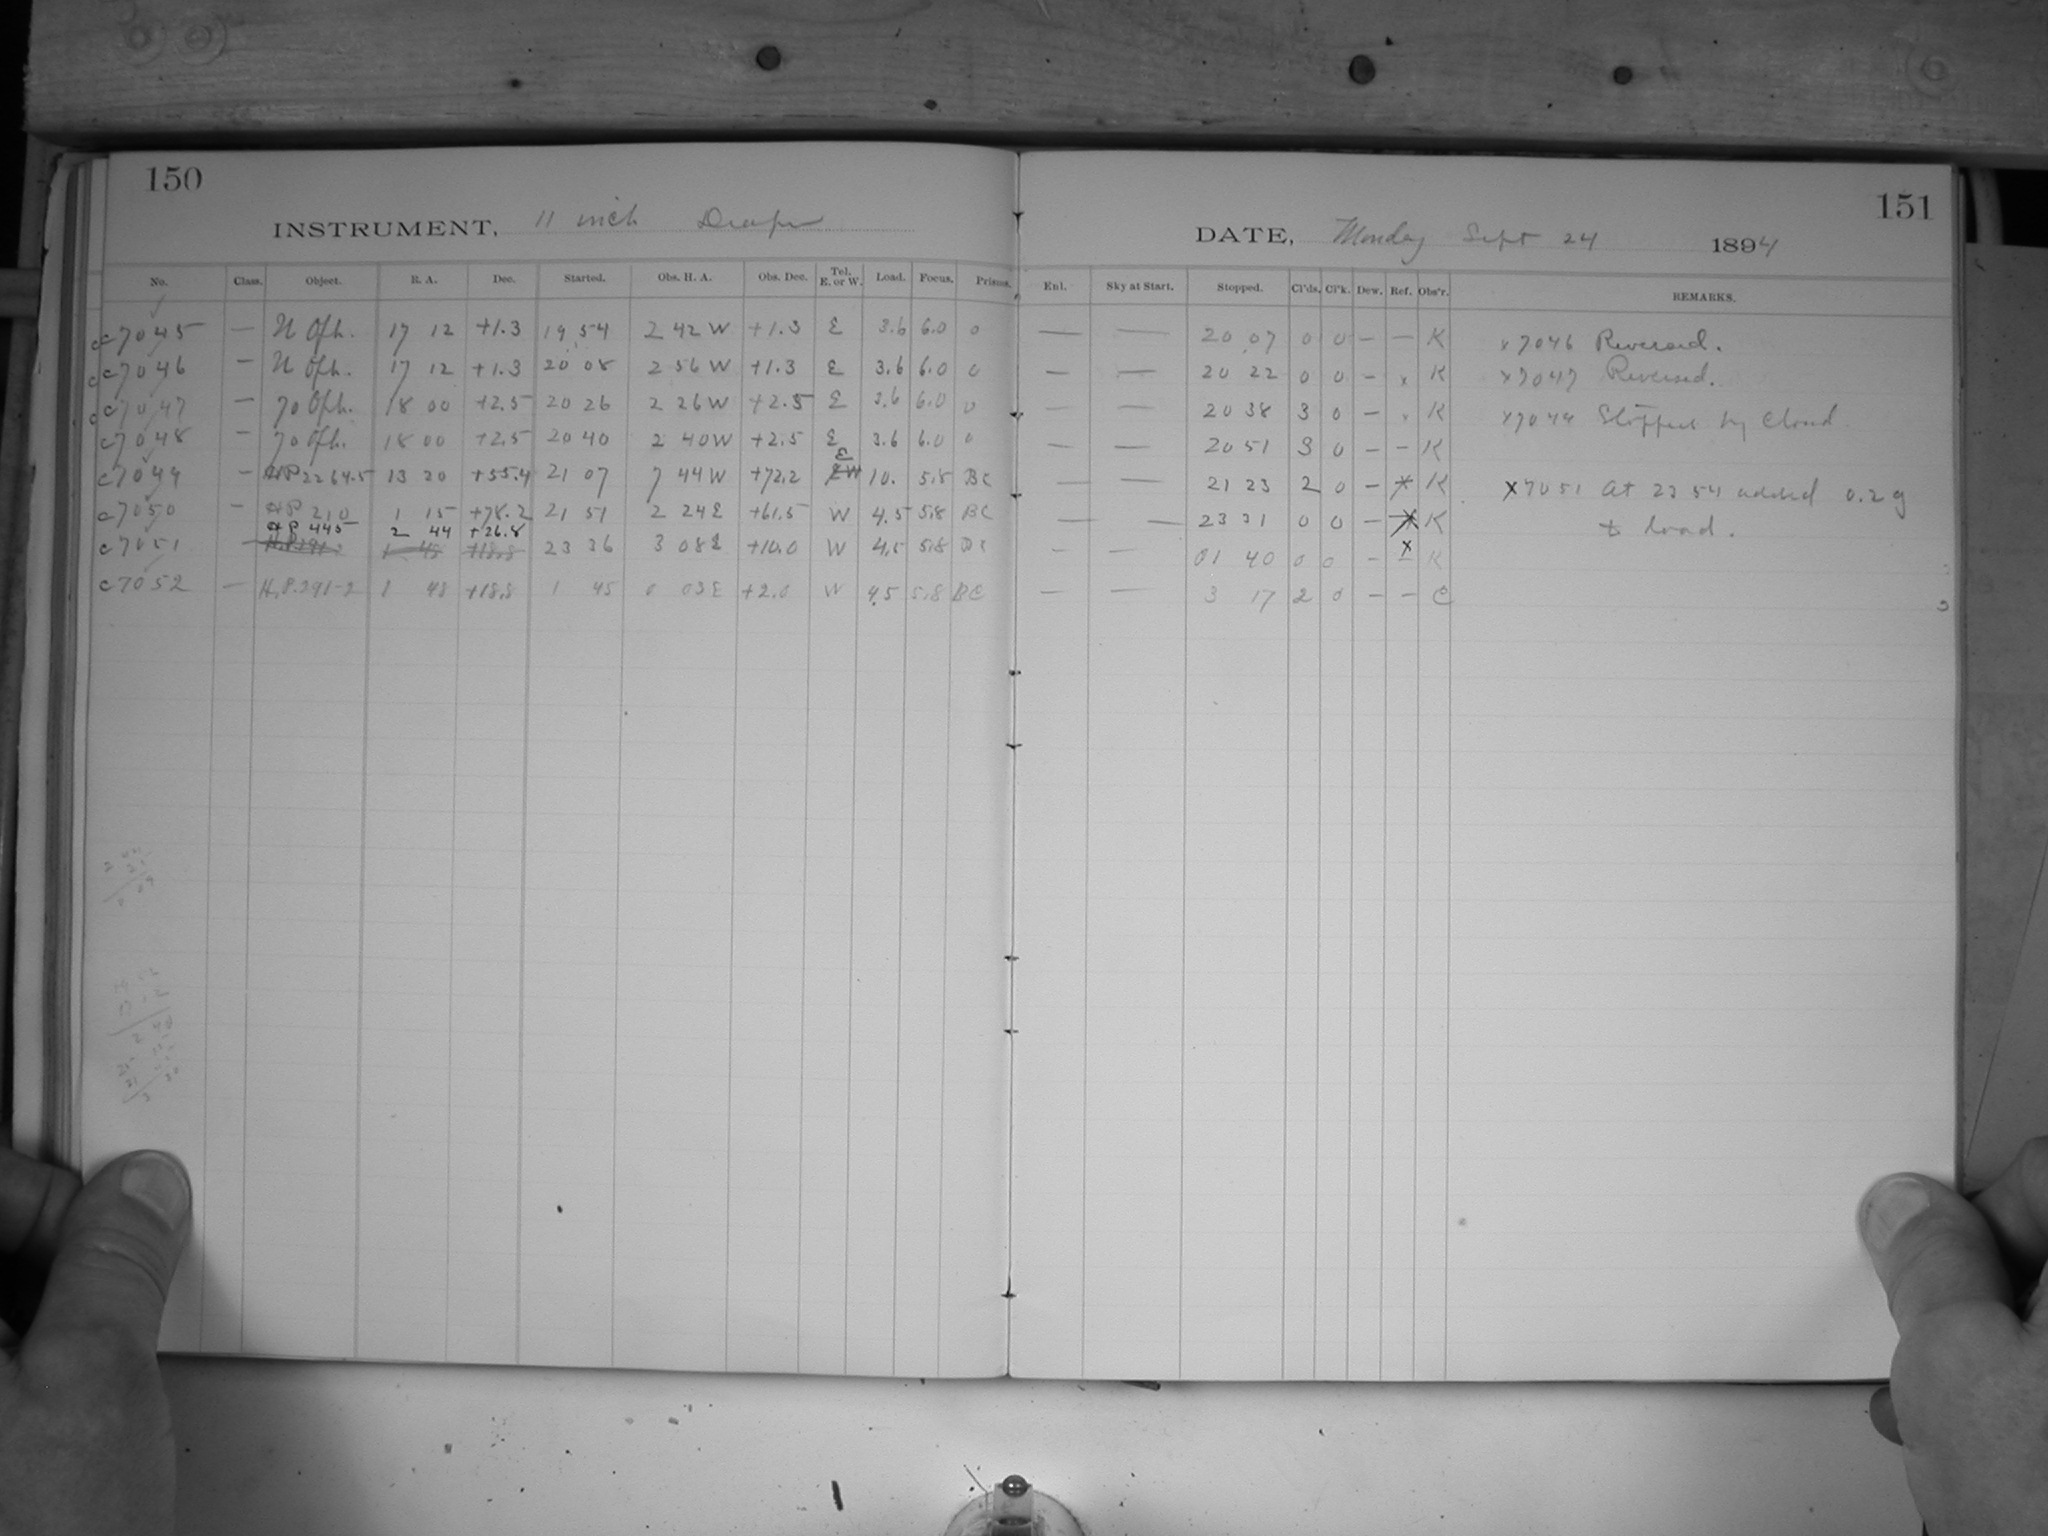 150
INSTRUMENT, 11 inch Draper
No. Class. Object. R. A. Dec. Started. Obs. H. A. Obs. Dec. Tel. E. or W. Load. Focus. Prisms.
c7045 — U Oph. 17 12 +1.3 19 54 2 42 W +1.3 E 3.6 6.0 0
c7046 — U Oph. 17 12 +1.3 20 08 2 56 W +1.3 E 3.6 6.0 0
c7047 — 70 Oph. 18 00 +2.5 20 26 2 26 W +2.5 E 3.6 6.0 0
c7048 — 70 Oph. 18 00 +2.5 20 40 2 40 W +2.5 E 3.6 6.0 0
c7049 — HP 2264.5 13 20 +55.4 21 07 7 44 W +72.2 E 10. 5.8 BC
c7050 — HP 210 1 15 +78.2 21 51 2 24 E +61.5 W 4.5 5.8 BC
HP 445 2 44 +26.8
c7051 — H.P. 291-2 1 48 +18.8 23 36 3 08 E +10.0 W 4.5 5.8 BC
c7052 — H.P. 291-2 1 48 +18.8 1 45 0 03 E +2.0 W 4.5 5.8 BC
151
DATE, Monday Sept 24 1894
Enl. Sky at Start. Stopped. Cl'ds. Cl'k. Dew. Ref. Obs'r. REMARKS.
— — 20 07 0 0 — — K x7046 Reversed.
— — 20 22 0 0 — x K x7047 Reversed.
— — 20 38 3 0 — x K x7049 Stopped by cloud
— — 20 51 3 0 — — K
— — 21 23 2 0 — x K x7051 at 23 54 added 0.2 g
— — 23 31 0 0 — x K to load.
— — 01 40 0 0 — x K
— — 3 17 2 0 — — C